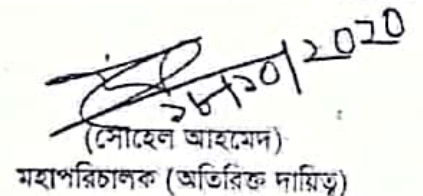 ২৮/১০/২০২০
(সোহেল আহমেদ)
মহাপরিচালক (অতিরিক্ত দায়িত্ব)